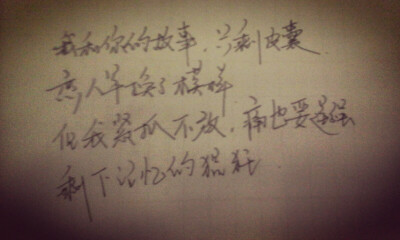 我和你的故事,只剩皮囊
恋人早换了模样
但我紧抓不放,痛也要逞强
剩下记忆的猖狂